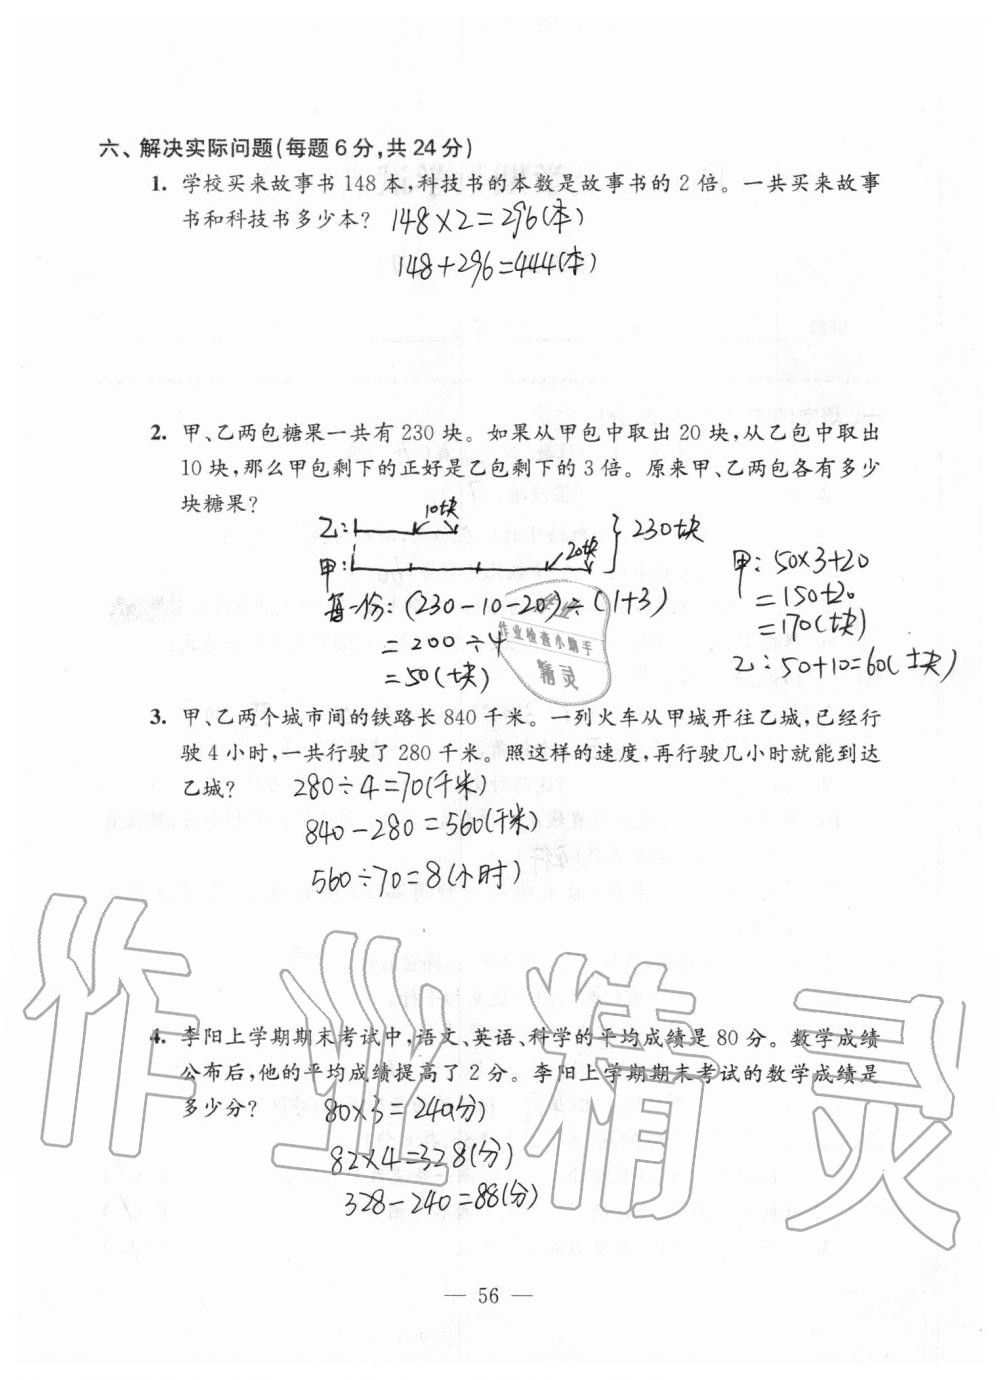 六、解决实际问题(每题6分,共24分)
1. 学校买来故事书148本,科技书的本数是故事书的2倍。一共买来故事
书和科技书多少本? 148×2=296(本)
148+296=444(本)
2. 甲、乙两包糖果一共有230块。如果从甲包中取出20块,从乙包中取出
10块,那么甲包剩下的正好是乙包剩下的3倍。原来甲、乙两包各有多少
块糖果?
10块
乙:
230块
20块
甲:
每一份:(230-10-20)÷(1+3)
=200÷4
=50(块)
甲:50×3+20
=150+20
=170(块)
乙:50+10=60(块)
作业检查小助手
精灵
3. 甲、乙两个城市间的铁路长840千米。一列火车从甲城开往乙城,已经行
驶4小时,一共行驶了280千米。照这样的速度,再行驶几小时就能到达
乙城? 280÷4=70(千米)
840-280=560(千米)
560÷70=8(小时)
4. 李阳上学期期末考试中,语文、英语、科学的平均成绩是80分。数学成绩
公布后,他的平均成绩提高了2分。李阳上学期期末考试的数学成绩是
多少分? 80×3=240(分)
82×4=328(分)
328-240=88(分)
作业精灵
— 56 —